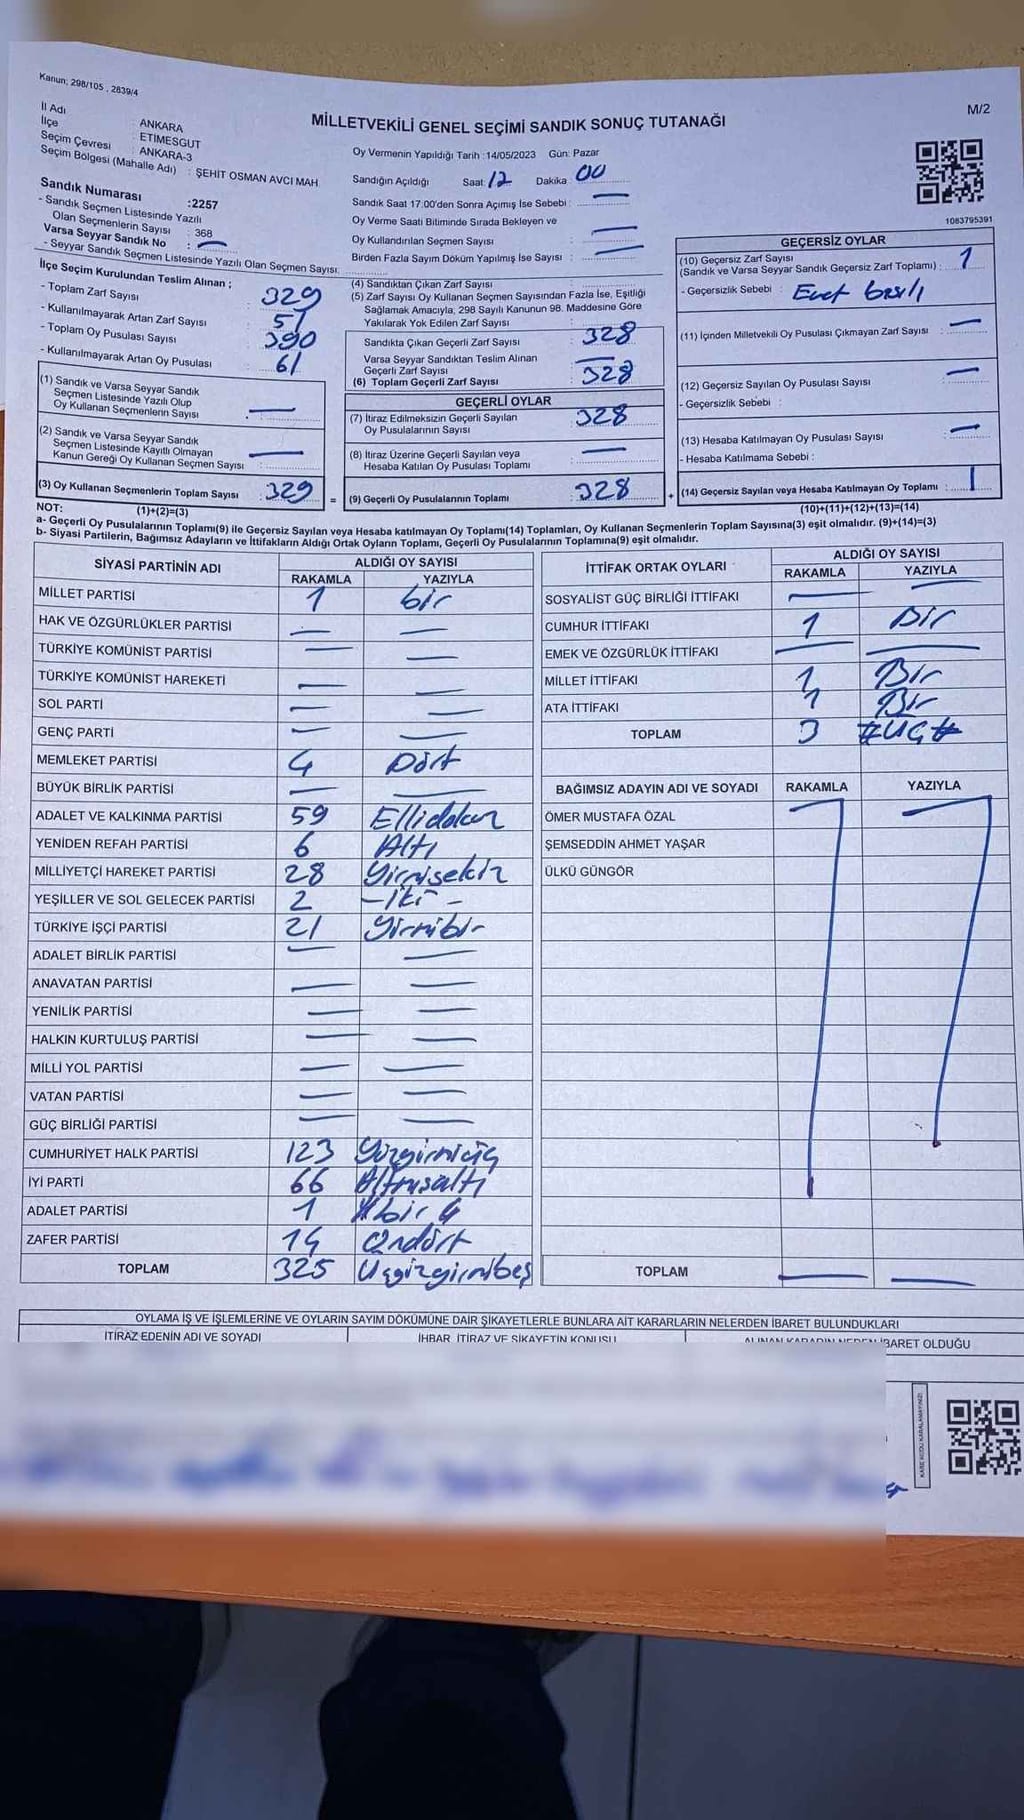 Kanun; 298/105 , 2839/4
M/2
MİLLETVEKİLİ GENEL SEÇİMİ SANDIK SONUÇ TUTANAĞI
İl Adı : ANKARA
İlçe : ETİMESGUT
Seçim Çevresi : ANKARA-3
Seçim Bölgesi (Mahalle Adı) : ŞEHİT OSMAN AVCI MAH
Sandık Numarası :2257
- Sandık Seçmen Listesinde Yazılı
Olan Seçmenlerin Sayısı : 368
Varsa Seyyar Sandık No : —
- Seyyar Sandık Seçmen Listesinde Yazılı Olan Seçmen Sayısı:
İlçe Seçim Kurulundan Teslim Alınan ;
- Toplam Zarf Sayısı : 329
- Kullanılmayarak Artan Zarf Sayısı : 51
- Toplam Oy Pusulası Sayısı : 390
- Kullanılmayarak Artan Oy Pusulası : 61
(1) Sandık ve Varsa Seyyar Sandık
Seçmen Listesinde Yazılı Olup
Oy Kullanan Seçmenlerin Sayısı : —
(2) Sandık ve Varsa Seyyar Sandık
Seçmen Listesinde Kayıtlı Olmayan
Kanun Gereği Oy Kullanan Seçmen Sayısı : —
(3) Oy Kullanan Seçmenlerin Toplam Sayısı : 329
Oy Vermenin Yapıldığı Tarih :14/05/2023 Gün: Pazar
Sandığın Açıldığı Saat: 12 Dakika : 00
Sandık Saat 17.00'den Sonra Açımış İse Sebebi : —
Oy Verme Saati Bitiminde Sırada Bekleyen ve
Oy Kullandırılan Seçmen Sayısı : —
Birden Fazla Sayım Döküm Yapılmış İse Sayısı : —
(4) Sandıktan Çıkan Zarf Sayısı :
(5) Zarf Sayısı Oy Kullanan Seçmen Sayısından Fazla İse, Eşitliği
Sağlamak Amacıyla, 298 Sayılı Kanunun 98. Maddesine Göre
Yakılarak Yok Edilen Zarf Sayısı :
Sandıkta Çıkan Geçerli Zarf Sayısı : 328
Varsa Seyyar Sandıktan Teslim Alınan
Geçerli Zarf Sayısı : —
(6) Toplam Geçerli Zarf Sayısı : 328
GEÇERLİ OYLAR
(7) İtiraz Edilmeksizin Geçerli Sayılan
Oy Pusulalarının Sayısı : 328
(8) İtiraz Üzerine Geçerli Sayılan veya
Hesaba Katılan Oy Pusulası Toplamı : —
= (9) Geçerli Oy Pusulalarının Toplamı : 328
1083795391
GEÇERSİZ OYLAR
(10) Geçersiz Zarf Sayısı
(Sandık ve Varsa Seyyar Sandık Geçersiz Zarf Toplamı) : 1
- Geçersizlik Sebebi : Evet basılı
(11) İçinden Milletvekili Oy Pusulası Çıkmayan Zarf Sayısı : —
(12) Geçersiz Sayılan Oy Pusulası Sayısı : —
- Geçersizlik Sebebi :
(13) Hesaba Katılmayan Oy Pusulası Sayısı : —
- Hesaba Katılmama Sebebi :
+ (14) Geçersiz Sayılan veya Hesaba Katılmayan Oy Toplamı : 1
NOT: (1)+(2)=(3) (10)+(11)+(12)+(13)=(14)
a- Geçerli Oy Pusulalarının Toplamı(9) ile Geçersiz Sayılan veya Hesaba katılmayan Oy Toplamı(14) Toplamları, Oy Kullanan Seçmenlerin Toplam Sayısına(3) eşit olmalıdır. (9)+(14)=(3)
b- Siyasi Partilerin, Bağımsız Adayların ve İttifakların Aldığı Ortak Oyların Toplamı, Geçerli Oy Pusulalarının Toplamına(9) eşit olmalıdır.
SİYASİ PARTİNİN ADI ALDIĞI OY SAYISI
RAKAMLA YAZIYLA
MİLLET PARTİSİ 1 bir
HAK VE ÖZGÜRLÜKLER PARTİSİ — —
TÜRKİYE KOMÜNİST PARTİSİ — —
TÜRKİYE KOMÜNİST HAREKETİ — —
SOL PARTİ — —
GENÇ PARTİ — —
MEMLEKET PARTİSİ 4 Dört
BÜYÜK BİRLİK PARTİSİ — —
ADALET VE KALKINMA PARTİSİ 59 Ellidokuz
YENİDEN REFAH PARTİSİ 6 Altı
MİLLİYETÇİ HAREKET PARTİSİ 28 Yirmisekiz
YEŞİLLER VE SOL GELECEK PARTİSİ 2 - İki -
TÜRKİYE İŞÇİ PARTİSİ 21 Yirmibir
ADALET BİRLİK PARTİSİ — —
ANAVATAN PARTİSİ — —
YENİLİK PARTİSİ — —
HALKIN KURTULUŞ PARTİSİ — —
MİLLİ YOL PARTİSİ — —
VATAN PARTİSİ — —
GÜÇ BİRLİĞİ PARTİSİ — —
CUMHURİYET HALK PARTİSİ 123 Yüzyirmiüç
İYİ PARTİ 66 Altmışaltı
ADALET PARTİSİ 1 bir
ZAFER PARTİSİ 14 Ondört
TOPLAM 325 Üçyüzyirmibeş
İTTİFAK ORTAK OYLARI ALDIĞI OY SAYISI
RAKAMLA YAZIYLA
SOSYALİST GÜÇ BİRLİĞİ İTTİFAKI — —
CUMHUR İTTİFAKI 1 Bir
EMEK VE ÖZGÜRLÜK İTTİFAKI — —
MİLLET İTTİFAKI 1 Bir
ATA İTTİFAKI 1 Bir
TOPLAM 3 #Üç#
BAĞIMSIZ ADAYIN ADI VE SOYADI RAKAMLA YAZIYLA
ÖMER MUSTAFA ÖZAL
ŞEMSEDDİN AHMET YAŞAR
ÜLKÜ GÜNGÖR
TOPLAM — —
OYLAMA İŞ VE İŞLEMLERİNE VE OYLARIN SAYIM DÖKÜMÜNE DAİR ŞİKAYETLERLE BUNLARA AİT KARARLARIN NELERDEN İBARET BULUNDUKLARI
İTİRAZ EDENİN ADI VE SOYADI İHBAR, İTİRAZ VE ŞİKAYETİN KONUSU ALINAN KARARIN NEDEN İBARET OLDUĞU
KARE KODU KARALAMAYINIZ!